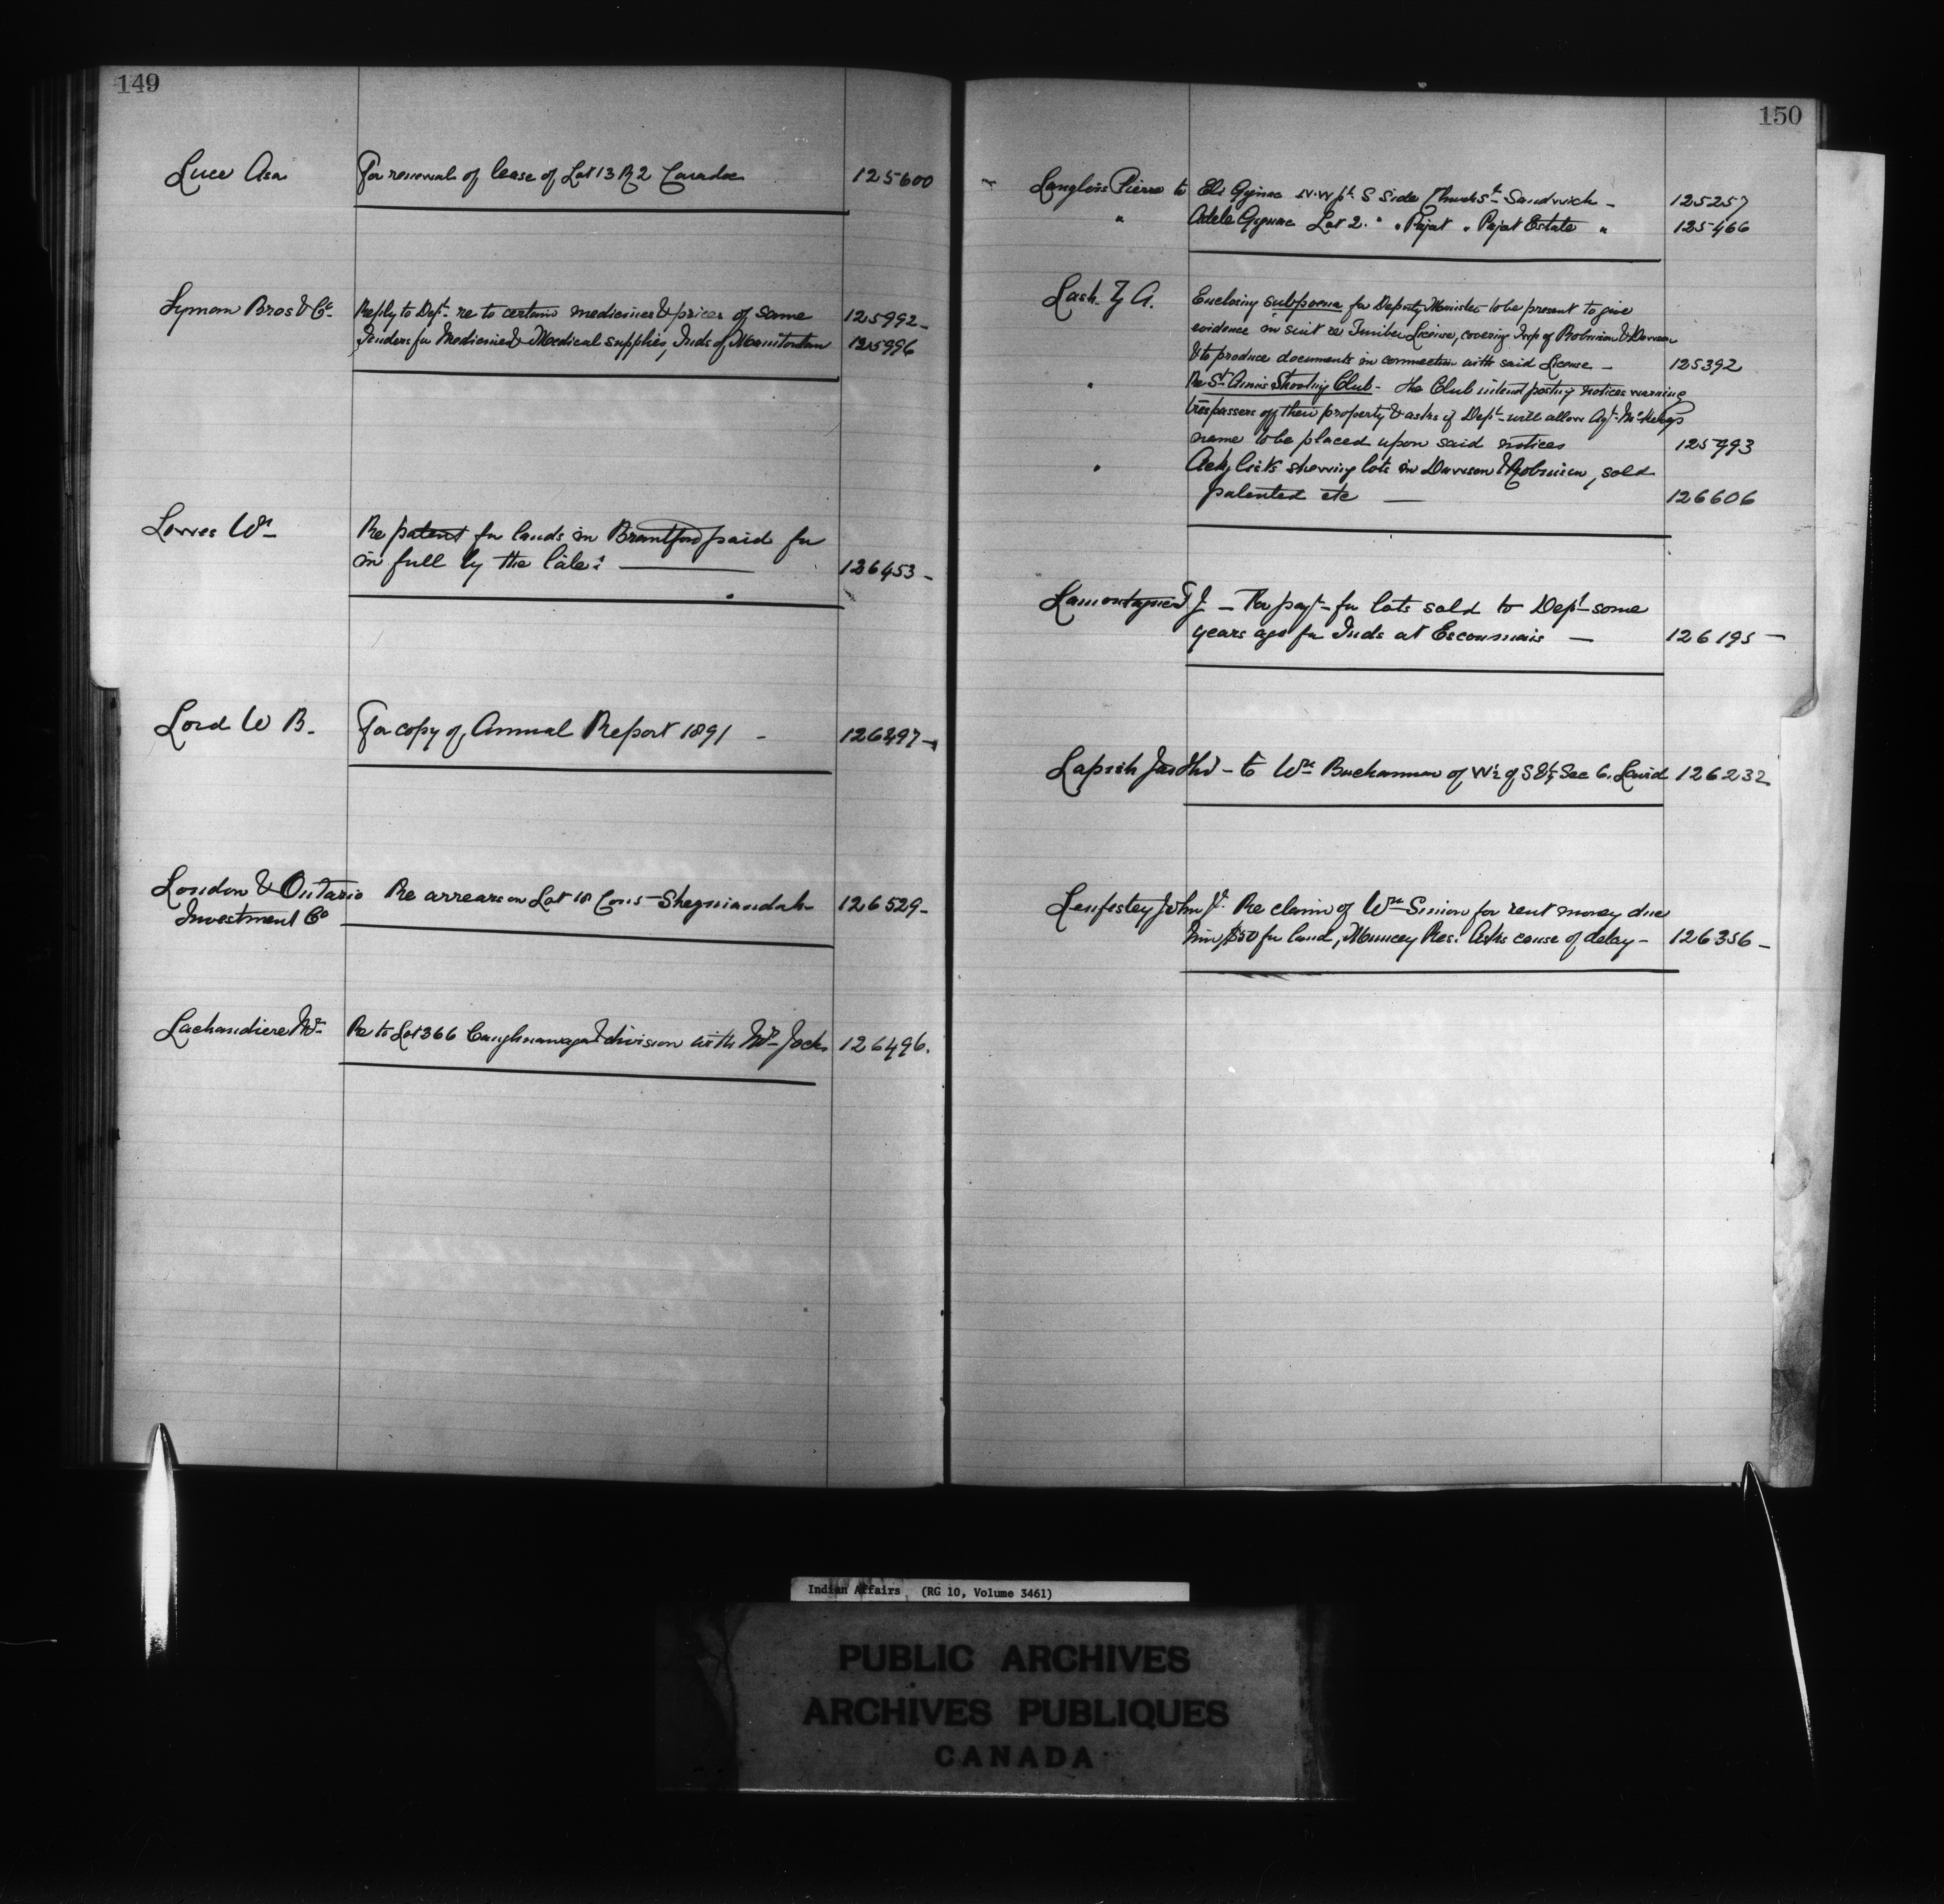 149
Luce Asa For renewal of lease of Lot 13 R 2 Caradoc 125600
Lyman Bros & Co. Reply to Dept. re to certain medicines & prices of same 125992
Tenders for Medicines & Medical supplies, Inds of Manitowan 125996
Lowes Wm Re patent for lands in Brantford paid for
in full by the late: 126453
Lord W B. For copy of Annual Report 1891 126497
London & Ontario Re arrears on Lot 18 Con 5 Shegniandah 126529
Investment Co
Lachandiere Mr. Re to Lot 366 Caughnawaga & division with Mr Jocks 126496.
150
Langlois Pierre to Eli Gignac N.W pt. S Side Church St. Sandwich 125257
" Adele Gignac Lot 2. " " Pajot " Pajot Estate " 125466
Lash Z A. Enclosing subpoena for Deputy Minister to be present to give
evidence in suit re Timber License, covering twps of Robinson & Dawson
& to produce documents in connection with said License 125392
" Re St. Annes Shooting Club - the Club intend posting notices warning
trespassers off their property & asks if Dept. will allow Agt. McKelvey's
name to be placed upon said notices 125993
" Ackg lists showing lots in Dawson & Robinson, sold
patented etc 126606
Lamontagne T J. - For payt. for lots sold to Dept. some
years ago for Inds at Escoumais 126195
Lapish Jas to Wm Buchannan of W½ of S E¼ Sec 6. Laird 126232
Lenfestey John Jr. Re claim of Wm Simon for rent money due
him, $50 for land, Muncey Res: Asks cause of delay 126356
Indian Affairs (RG 10, Volume 3461)
PUBLIC ARCHIVES
ARCHIVES PUBLIQUES
CANADA